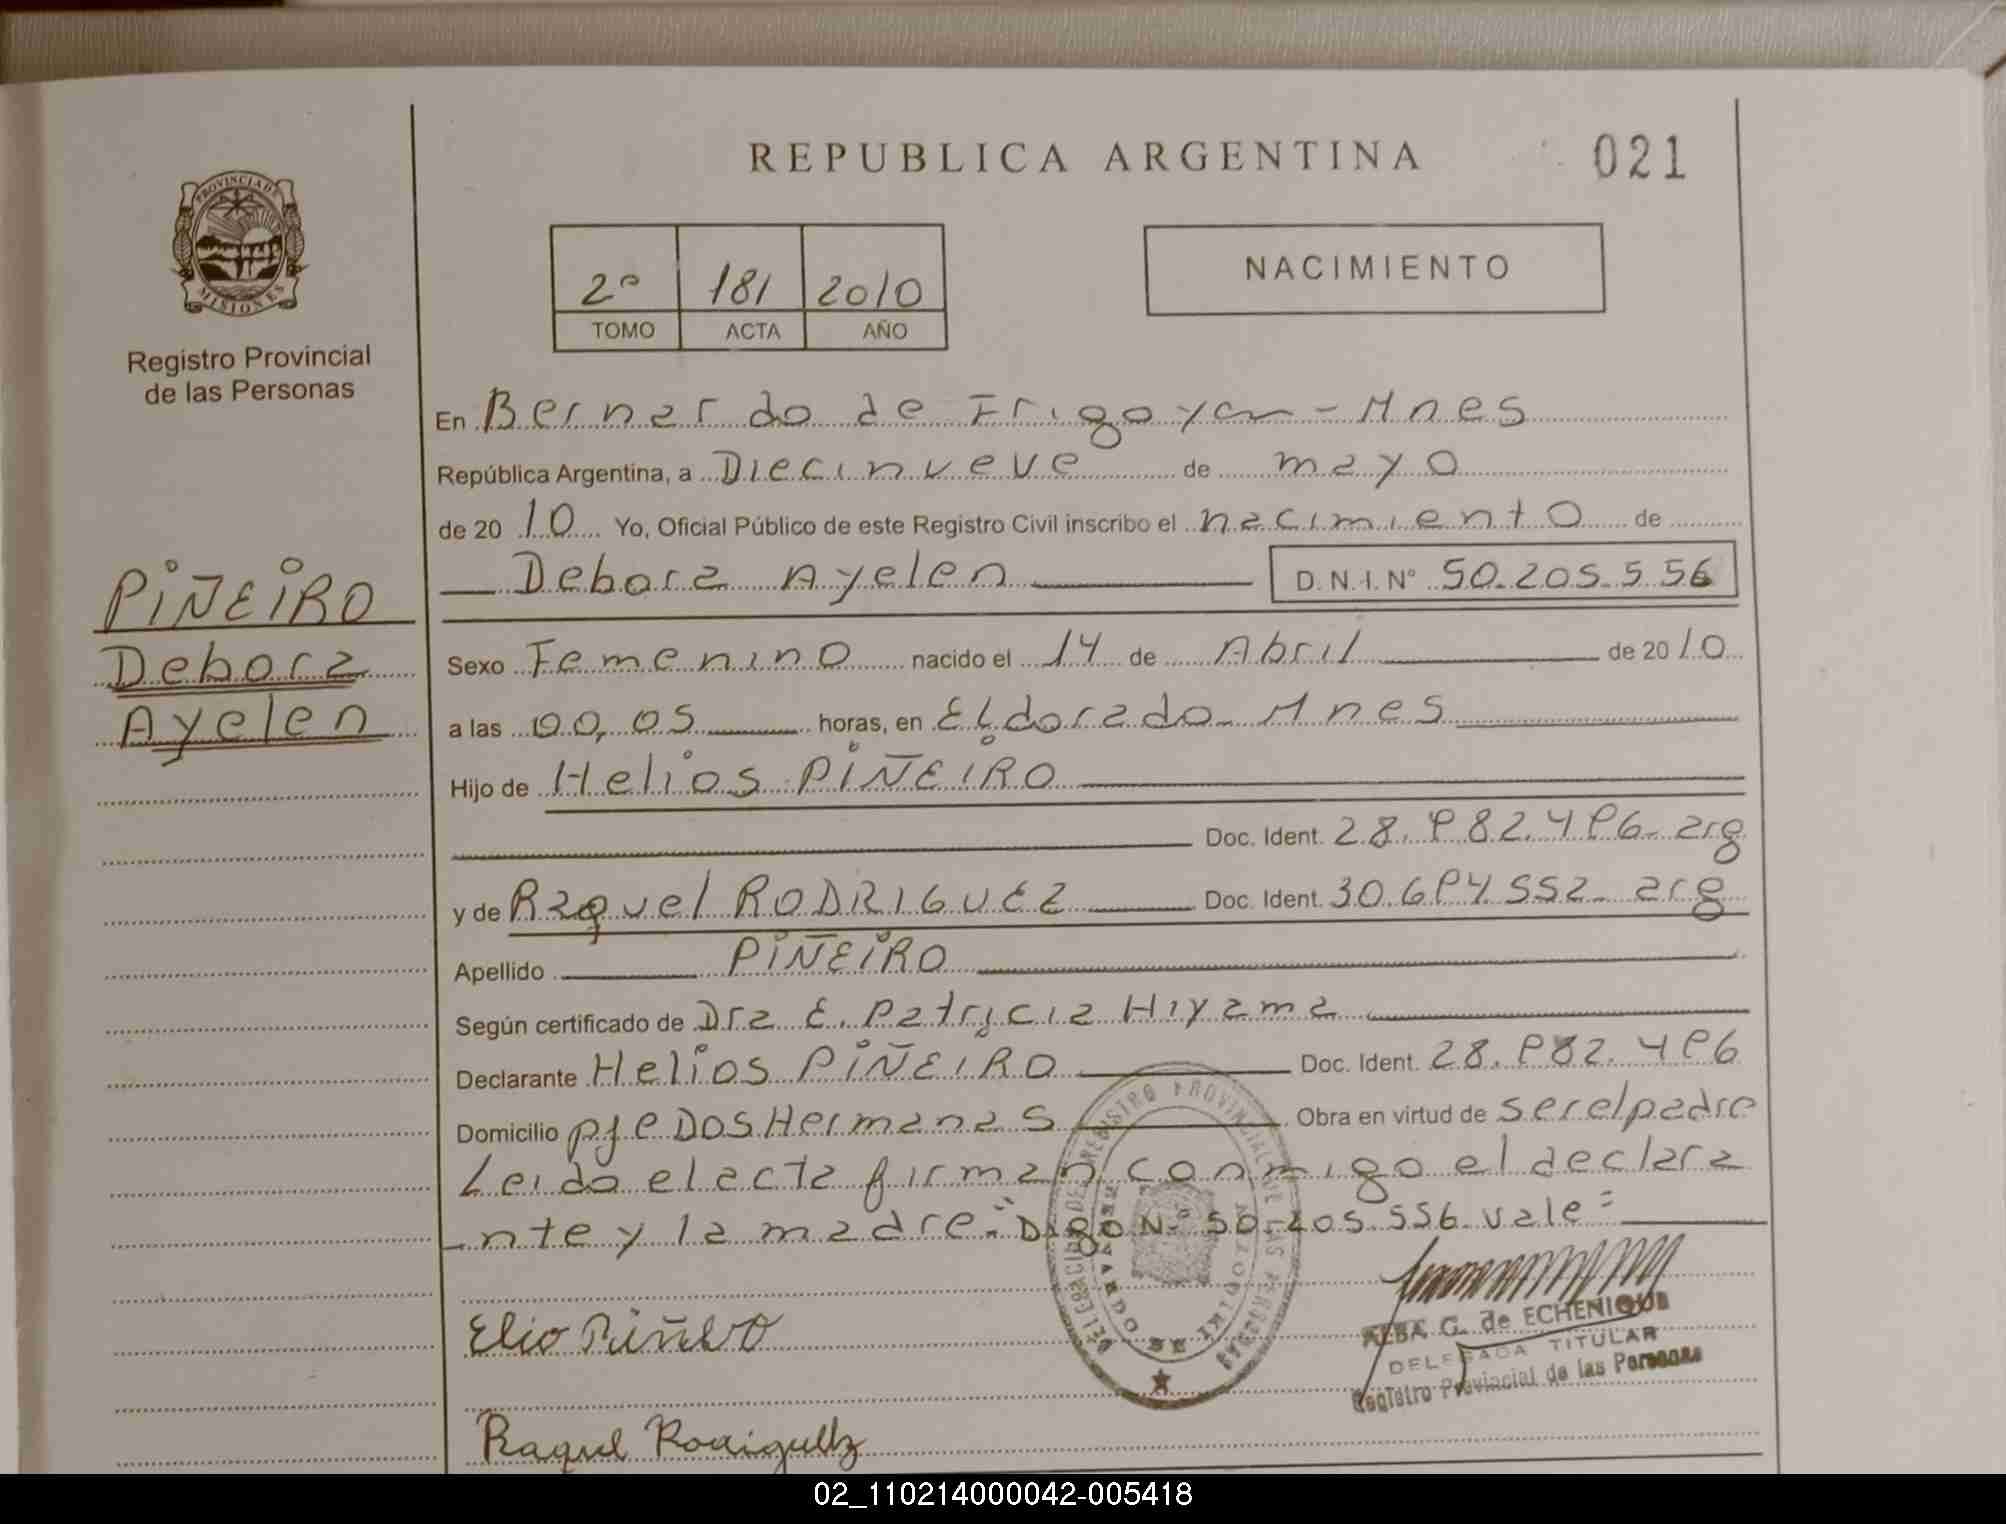 REPUBLICA ARGENTINA
021
PROVINCIA DE MISIONES
Registro Provincial
de las Personas
2º 181 2010
TOMO ACTA AÑO
NACIMIENTO
En Bernardo de Irigoyen - Mnes
República Argentina, a Diecinueve de mayo
de 2010 Yo, Oficial Público de este Registro Civil inscribo el nacimiento de
Debora Ayelen D.N.I. Nº 50.205.556
PIÑEIRO
Debora
Ayelen
Sexo Femenino nacido el 14 de Abril de 2010
a las 00,05 horas, en Eldorado Mnes
Hijo de Helios PIÑEIRO
Doc. Ident. 28.982.496 - arg
y de Raquel RODRIGUEZ Doc. Ident. 30.694.552 - arg
Apellido PIÑEIRO
Según certificado de Dra E. Patricia Hiyama
Declarante Helios PIÑEIRO Doc. Ident. 28.982.496
Domicilio pje Dos Hermanas Obra en virtud de ser el padre
Leido el acta firman conmigo el declara
nte y la madre." Digo N.º 50-205.556 vale=
DELEGACION DEL REGISTRO PROVINCIAL DE LAS PERSONAS
BERNARDO DE IRIGOYEN
Elio Piñeiro
ALBA G. de ECHENIQUE
DELEGADA TITULAR
Registro Provincial de las Personas
Raquel Rodriguez
02_110214000042-005418